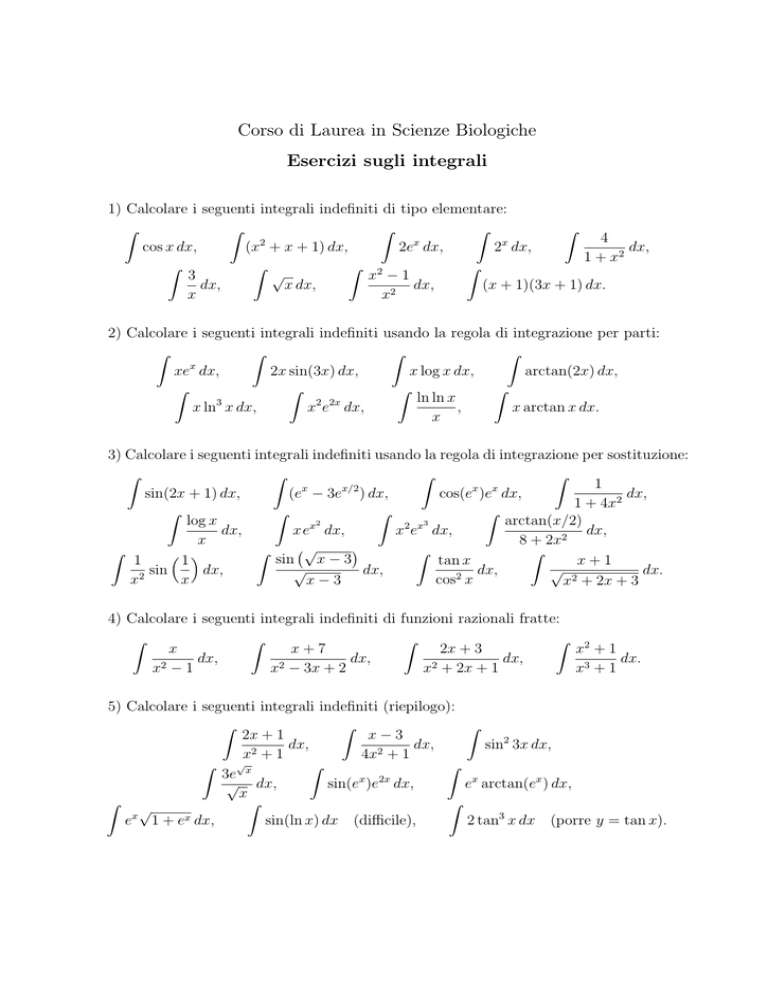 Corso di Laurea in Scienze Biologiche
Esercizi sugli integrali
1) Calcolare i seguenti integrali indefiniti di tipo elementare:
∫ cos x dx, ∫ (x² + x + 1) dx, ∫ 2eˣ dx, ∫ 2ˣ dx, ∫ 4/(1 + x²) dx,
∫ 3/x dx, ∫ √x dx, ∫ (x² − 1)/x² dx, ∫ (x + 1)(3x + 1) dx.
2) Calcolare i seguenti integrali indefiniti usando la regola di integrazione per parti:
∫ xeˣ dx, ∫ 2x sin(3x) dx, ∫ x log x dx, ∫ arctan(2x) dx,
∫ x ln³ x dx, ∫ x²e^{2x} dx, ∫ (ln ln x)/x , ∫ x arctan x dx.
3) Calcolare i seguenti integrali indefiniti usando la regola di integrazione per sostituzione:
∫ sin(2x + 1) dx, ∫ (eˣ − 3e^{x/2}) dx, ∫ cos(eˣ)eˣ dx, ∫ 1/(1 + 4x²) dx,
∫ (log x)/x dx, ∫ xe^{x²} dx, ∫ x²e^{x³} dx, ∫ arctan(x/2)/(8 + 2x²) dx,
∫ 1/x² sin (1/x) dx, ∫ sin (√(x − 3))/√(x − 3) dx, ∫ (tan x)/(cos² x) dx, ∫ (x + 1)/√(x² + 2x + 3) dx.
4) Calcolare i seguenti integrali indefiniti di funzioni razionali fratte:
∫ x/(x² − 1) dx, ∫ (x + 7)/(x² − 3x + 2) dx, ∫ (2x + 3)/(x² + 2x + 1) dx, ∫ (x² + 1)/(x³ + 1) dx.
5) Calcolare i seguenti integrali indefiniti (riepilogo):
∫ (2x + 1)/(x² + 1) dx, ∫ (x − 3)/(4x² + 1) dx, ∫ sin² 3x dx,
∫ 3e^{√x}/√x dx, ∫ sin(eˣ)e^{2x} dx, ∫ eˣ arctan(eˣ) dx,
∫ eˣ√(1 + eˣ) dx, ∫ sin(ln x) dx (difficile), ∫ 2 tan³ x dx (porre y = tan x).